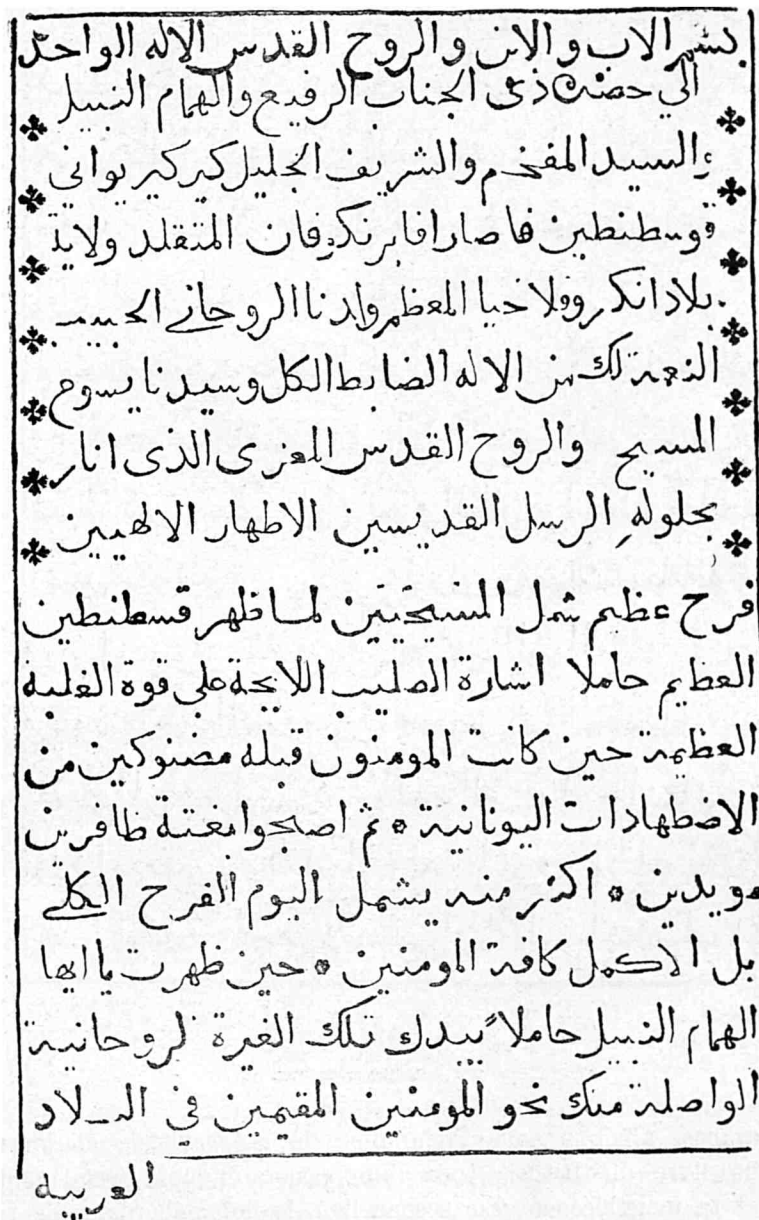 بسم الاب والابن والروح القدس الاله الواحد
الي حضرت ذى الجناب الرفيع والهمام النبيل
السيد المفخم والشريف الجليل كير كير يواني
قوسطنطين هاصارافا بريكوفان المتقلد ولاية
بلاد انكروفلاخيا المعظم ولدنا الروحاني الحبيب
النعمة لك من الاله الضابط الكل وسيدنا يسوع
المسيح والروح القدس المعزى الذى انار
بحلوله الرسل القديسين الاطهار الالاهيين
فرح عظيم شمل المسيحيين لما ظهر قسطنطين
العظيم حاملا اشارة الصليب اللايحة على قوة الغلبة
العظيمة حين كانت المومنون قبله مضنوكين من
الاضطهادات اليونانية ٥ ثم اصبحوا بغتة ظافرين
مويدين ٥ اكثر منه يشمل اليوم الفرح الكلي
بل الاكمل كافة المومنين ٥ حين ظهرت يا ايها
الهمام النبيل حاملاً بيدك تلك الغيرة لروحانية
الواصلة منك نحو المومنين المقيمين في البلاد
العربية